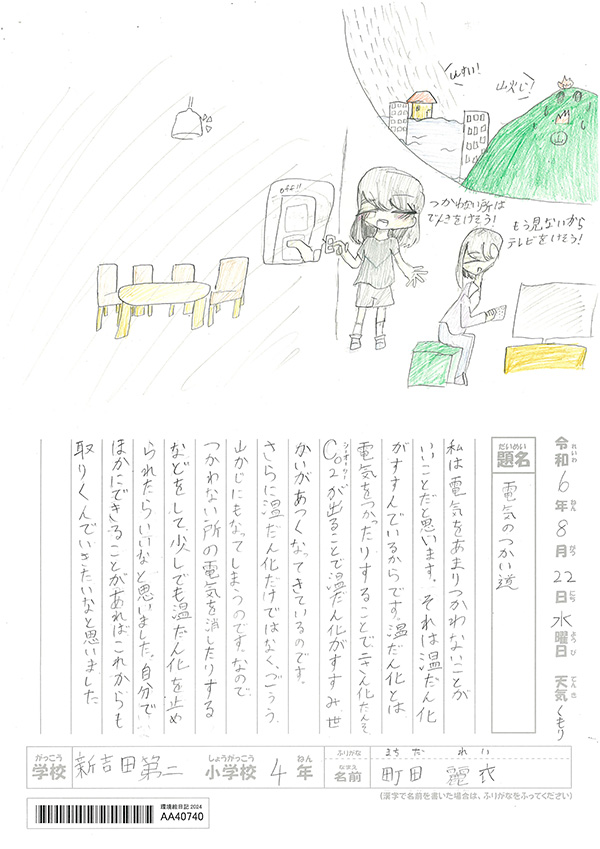 off!!
こうずい!
山火じ!
つかわない所は
でんきをけそう!
もう見ないから
テレビをけそう!
令和6年8月22日水曜日 天気くもり
れいわ ねん がつ にち ようび てんき
だいめい
題名
電気のつかい道
私は電気をあまりつかわないことが
いいことだと思います。それは温だん化
がすすんでいるからです。温だん化とは
電気をつかったりすることで、二さん化たんそ
シーオーツー
CO2が出ることで温だん化がすすみ、世
かいがあつくなってきているのです。
さらに温だん化だけではなく、ごうう、
山かじにもなってしまうのです。なので
つかわない所の電気を消したりする
などをして、少しでも温だん化を止め
られたらいいなと思いました。自分で
ほかにできることがあればこれからも
取りくんでいきたいなと思いました
がっこう しょうがっこう ねん
学校 新吉田第二 小学校 4年
ふりがな まちだ れい
なまえ
名前 町田 麗衣
(漢字で名前を書いた場合は、ふりがなをふってください)
環境絵日記2024
AA40740